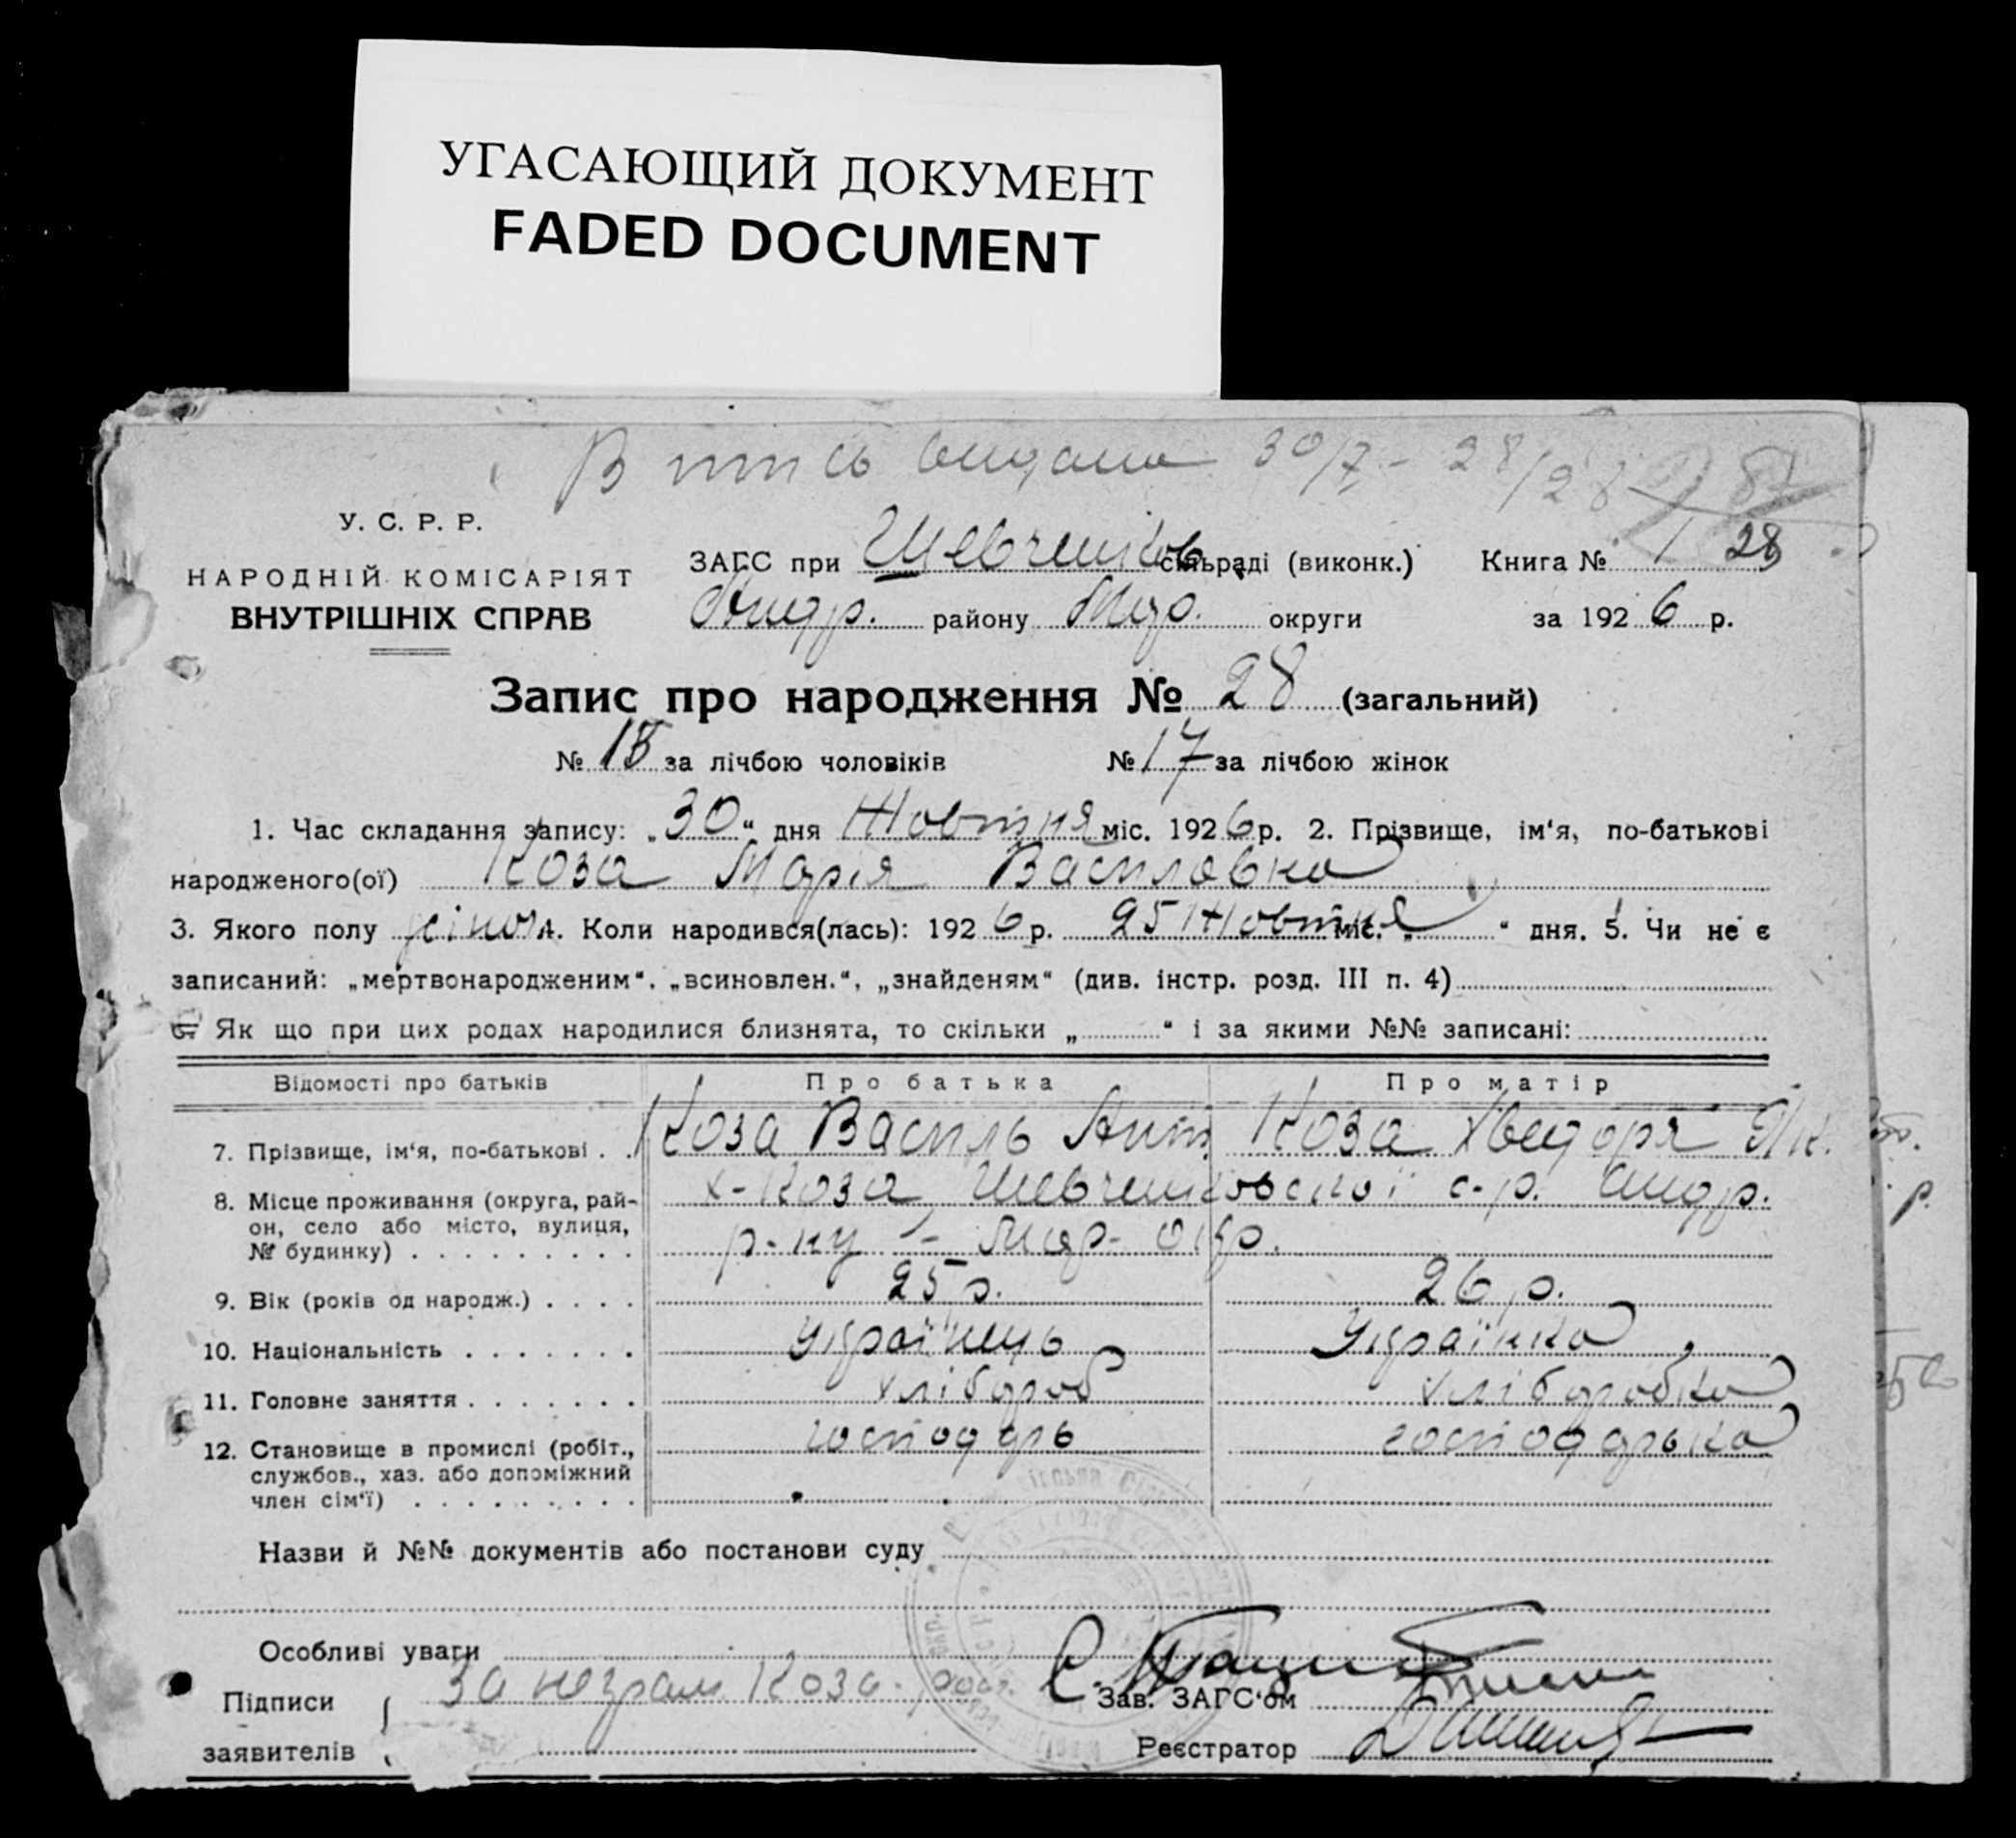 УГАСАЮЩИЙ ДОКУМЕНТ
FADED DOCUMENT
видана 30/7 - 28/28
У. С. Р. Р.
НАРОДНІЙ КОМІСАРІЯТ
ВНУТРІШНІХ СПРАВ
ЗАГС при Шевченков сільраді (виконк.) Книга № 1 28
району округи за 1926 р.
Запис про народження № 28 (загальний)
№ за лічбою чоловіків № 17 за лічбою жінок
1. Час складання запису: „30“ дня Жовтня міс. 1926 р. 2. Прізвище, ім‘я, по-батькові
народженого(ої) Коза Марія Василовна
3. Якого полу жіноч 4. Коли народився(лась): 1926 р. 25 Жовтня міс. „ “ дня. 5. Чи не є
записаний: „мертвонародженим“, „всиновлен.“, „знайденям“ (див. інстр. розд. III п. 4)
6. Як що при цих родах народилися близнята, то скільки „ “ і за якими №№ записані:
Відомості про батьків Про батька Про матір
7. Прізвище, ім‘я, по-батькові . . Коза Василь Ант Коза Хведоря Як.
8. Місце проживання (округа, рай- х-Коза Шевченковської с-р. Андр.
он, село або місто, вулиця,
№ будинку) . . . . . . . . . р-ну - Мар- окр.
9. Вік (років од народж.) . . . . 25 р. 26 р.
10. Національність . . . . . . . Українець Українка
11. Головне заняття . . . . . . . хлібороб хліборобка
12. Становище в промислі (робіт., господарь господарька
службов., хаз. або допоміжний
член сім‘ї) . . . . . . . . .
Назви й №№ документів або постанови суду
Особливі уваги
Підписи За неграм. Коза
Зав. ЗАГС‘ом
заявителів Реєстратор